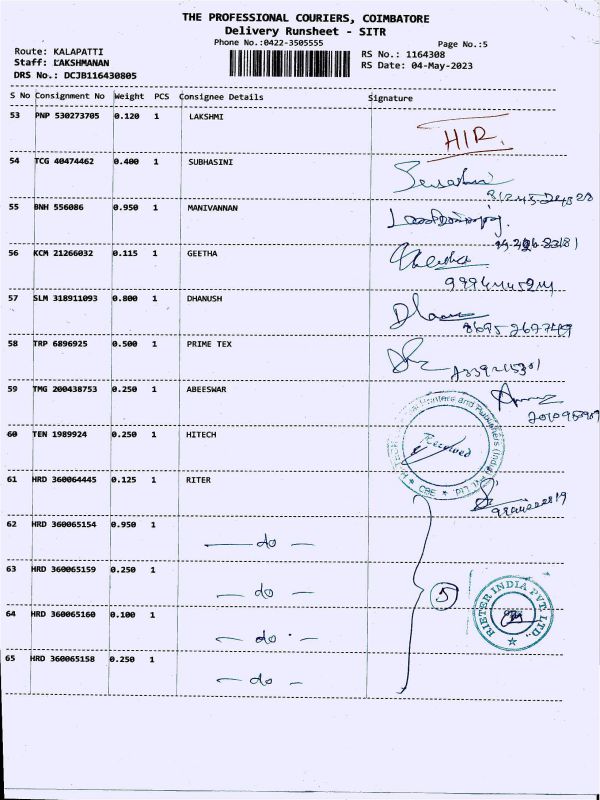 THE PROFESSIONAL COURIERS, COIMBATORE
Delivery Runsheet - SITR
Phone No.:0422-3505555
Page No.:5
Route: KALAPATTI
RS No.: 1164308
Staff: LAKSHMANAN
RS Date: 04-May-2023
DRS No.: DCJB116430805
S No Consignment No Weight PCS Consignee Details Signature
53 PNP 530273705 0.120 1 LAKSHMI
HIR.
54 TCG 40474462 0.400 1 SUBHASINI
55 BNH 556086 0.950 1 MANIVANNAN
56 KCM 21266032 0.115 1 GEETHA
Geetha
57 SLM 318911093 0.800 1 DHANUSH
58 TRP 6896925 0.500 1 PRIME TEX
59 TMG 200438753 0.250 1 ABEESWAR
60 TEN 1989924 0.250 1 HITECH
Printers and Publishers (India) Pvt. Ltd. * CBE *
Received
61 HRD 360064445 0.125 1 RITER
62 HRD 360065154 0.950 1 — do —
63 HRD 360065159 0.250 1 — do —
5
RIETER INDIA PVT. LTD.,
64 HRD 360065160 0.100 1 — do —
65 HRD 360065158 0.250 1 — do —